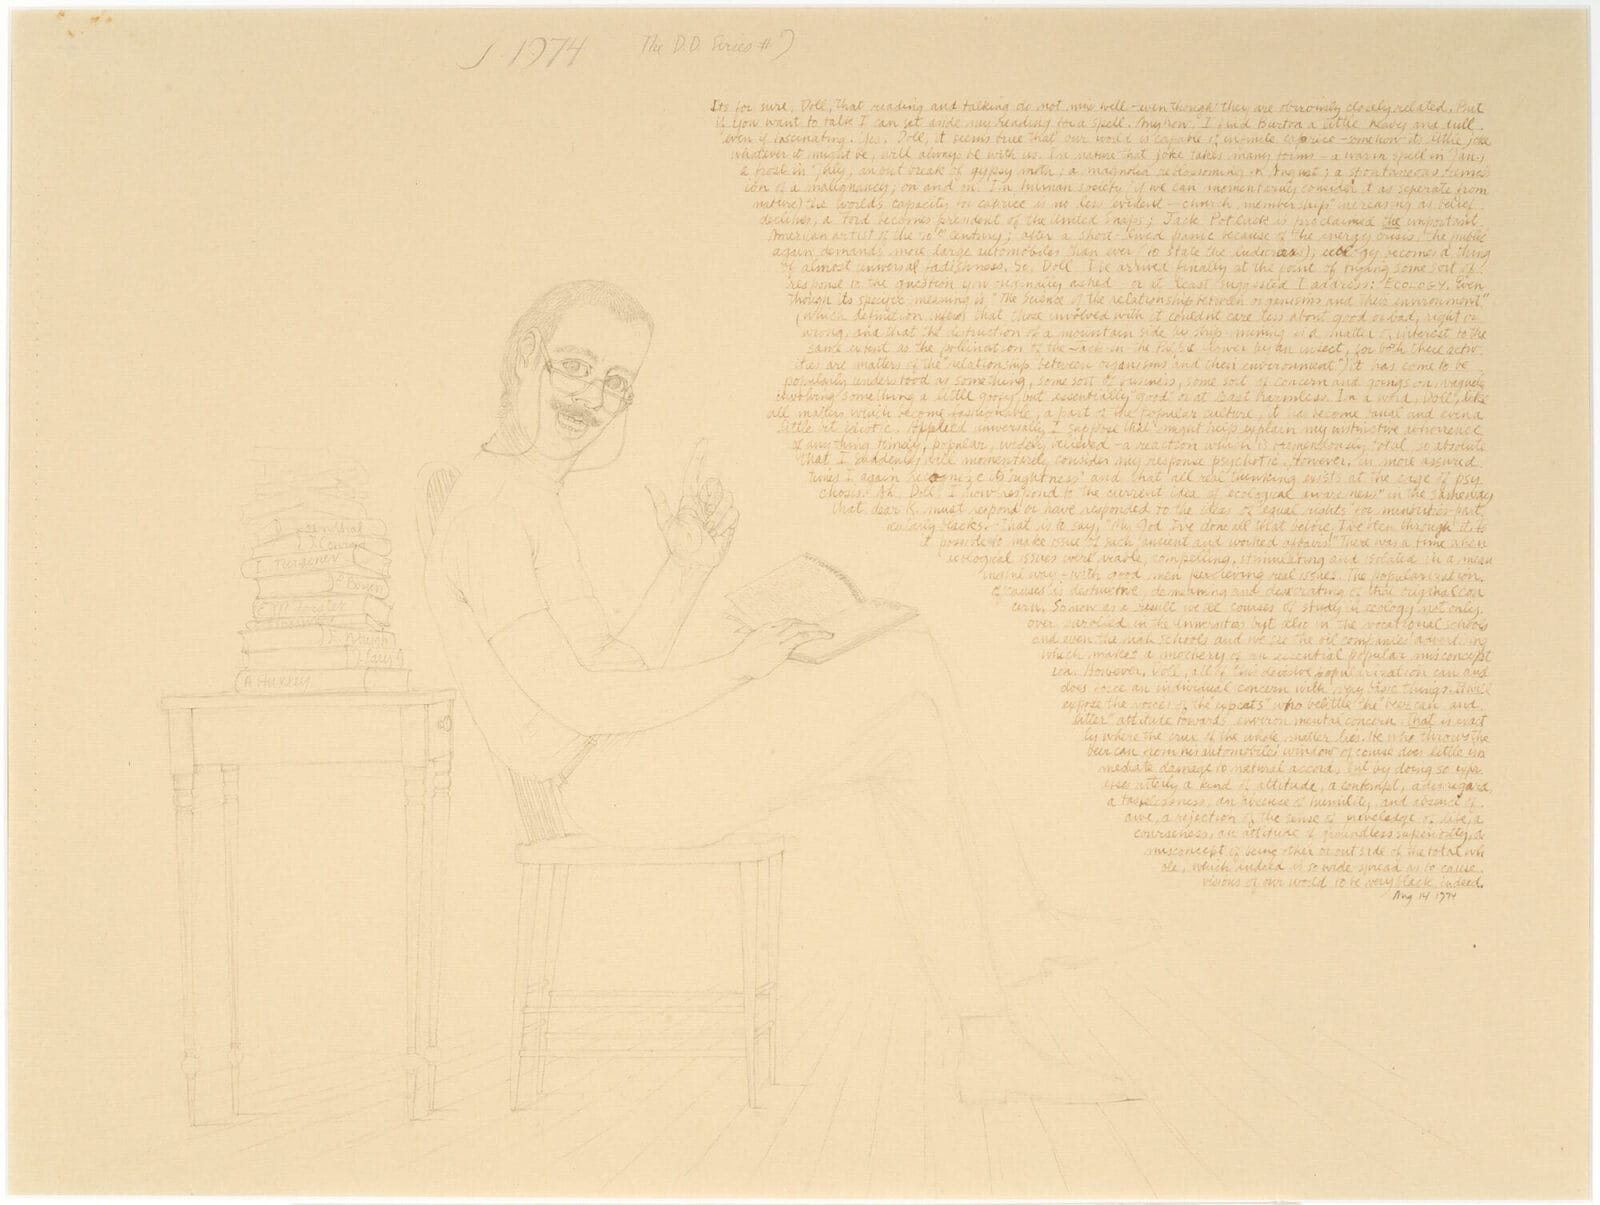 J. 1974 The D.D. Series # 9
Its for sure, Doll, that reading and talking do not mix well - even though they are obviously closely related. But
if you want to talk I can set aside my reading for a spell. Anyhow, I find Burton a little heavy and dull
even if fascinating. Yes, Doll, it seems true that our world is capable of infinite caprice - somehow its little joke
whatever it might be, will always be with us. In nature that joke takes many forms - a warm spell in Jan.;
a frost in July; an out break of gypsy moth; a magnolia reblossoming in August; a spontaneous remiss
ion of a malignancy; on and on. In human society (if we can momentarily consider it as seperate from
nature) the world's capacity for caprice is no less evident - church membership increasing as belief
declines; a Ford becomes president of the United Snaps; Jack Potluck is proclaimed the important
American artist of the 20th century; after a short-lived panic because of the "energy crisis," the public
again demands more large automobiles than ever; to state the ludicrous), ecology becomes a thing
of almost universal fadishness. So, Doll I've arrived finally at the point of trying some sort of
response to the question you originally asked or at least suggested I address: "ECOLOGY. Even
though its specific meaning is "The science of the relationship between organisms and their environment"
(which definition infers that those involved with it couldn't care less about good or bad, right or
wrong, and that the destruction of a mountain side by strip-mining is a matter of interest to the
same extent as the pollination of the Jack-in-the Pulpit flower by an insect, for both these activ
ities are matters of the "relationship between organisms and their environment") it has come to be
popularly understood as something, some sort of business, some sort of concern and goings on, vaguely
involving something a little goofy but essentially "good" or at least harmless. In a word, Doll, like
all matters which become fashionable, a part of the popular culture, it has become banal and even a
little bit idiotic. Applied universally, I suppose that might help explain my instinctive abhorence
of any thing timely, popular, widely believed - a reaction which is tremendously total, so absolute
that I suddenly will momentarily consider my response psychotic. However, in more assured
times I again recognize its "rightness" and that all real thinking exists at the edge of psy
chosis. Ah, Doll, I now respond to the current idea of ecological awareness" in the same way
that dear R. must respond or have responded to the ideas of "equal rights" for minorities part
icularly blacks. That is to say, "My God I've done all that before, I've been through it. Is
it possible to make issue of such ancient and worked affairs!" There was a time when
ecological issues were viable, compelling, stimulating and isolated in a mean
ingful way - with good men percieving real issues. The popularization
of causes is destructive, demeaning and deteriorating of that original con
cern. So now as a result we see courses of study in ecology not only
over enrolled in the universities but also in the vocational schools
and even the high schools and we see the oil companies advertising
which makes a mockery of an essential popular misconcept
ion. However, Doll, all of this devisive popularization can and
does force an individual concern with very basic things. It will
expose the voices of the expeats" who belittle the "beer can and
litter" attitude towards environmental concern. That is exact
ly where the crux of the whole matter lies. He who throws the
beer can from his automobile window of course does little im
mediate damage to natural accord, but by doing so expr
esses utterly a kind of attitude, a contempt, a disregard,
a tastelessness, an absence of humility, and absence of
awe, a rejection of the sense of knowledge of life, a
courseness, an attitude of groundless superiority, a
misconcept of being other or outside of the total wh
ole, which indeed is so wide spread as to cause
visions of our world to be very black indeed.
Aug 14 1974
D. Rosenthal
J. Conrad
I. Turgenev
A. Bowen
E M Forster
E. Waugh
J. Cary
A Huxley